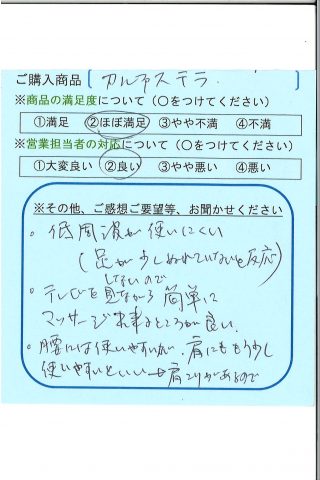 ご購入商品 〔 カルテステラ 〕
※商品の満足度について（〇をつけてください）
①満足 ②ほぼ満足 ③やや不満 ④不満
※営業担当者の対応について（〇をつけてください）
①大変良い ②良い ③やや悪い ④悪い
※その他、ご感想ご要望等、お聞かせください
。低周波が使いにくい
（足が少しぬれていないと反応）
しないので
。テレビを見ながら簡単に
マッサージ出来るところが良い．
。腰には使いやすいが、肩にももう少し
使いやすいといい→肩こりがあるので